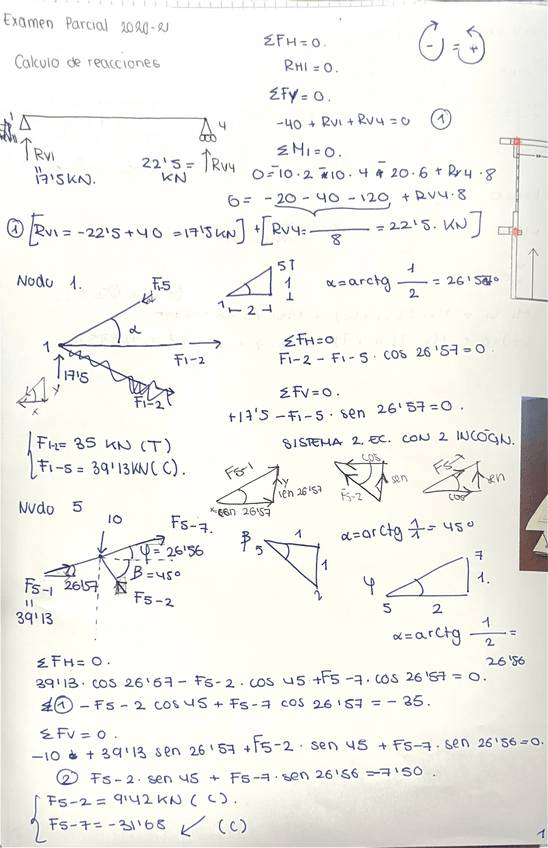 Examen Parcial 2020-21
Calculo de reacciones
ΣFH=0.
RH1=0.
- = +
ΣFy=0.
-40 + RV1 + RV4 = 0 ①
4
RV1
17'5KN.
22'5 = KN
RV4
ΣM1=0.
0=-10·2-10·4-20·6+RV4·8
0=-20-40-120+RV4·8
① [RV1=-22'5+40=17'5KN]+[RV4=/8=22'5. KN]
Nodo 1.
F1-5
α
1
F1-2
17'5
F1-2
y
x
5
1
1
2
α=arctg 1/2=26'5
ΣFH=0
F1-2-F1-5·cos 26'57=0.
ΣFV=0.
+17'5-F1-5·sen 26'57=0.
SISTEMA 2 EC. CON 2 INCÓGN.
F1-2=35 KN (T)
F1-5=39'13KN(C).
F5-1
y
sen 26'57
x
26'57
cos
F5-2
sen
sen
cos
Nudo 5
10
F5-7.
φ=26'56
β=45º
F5-1
26'57
F5-2
39'13
β
5
1
1
2
α=arctg 1/1=45º
φ
7
1.
5
2
α=arctg 1/2=
26'56
ΣFH=0.
39'13·cos 26'57-F5-2·cos 45+F5-7·cos 26'57=0.
① -F5-2 cos45+F5-7 cos 26'57=-35.
ΣFV=0.
-10+39'13 sen 26'57+F5-2·sen 45+F5-7·sen 26'56=0.
② F5-2·sen 45+F5-7·sen 26'56=-7'50.
F5-2=9'42KN (C).
F5-7=-31'68 (C)
1